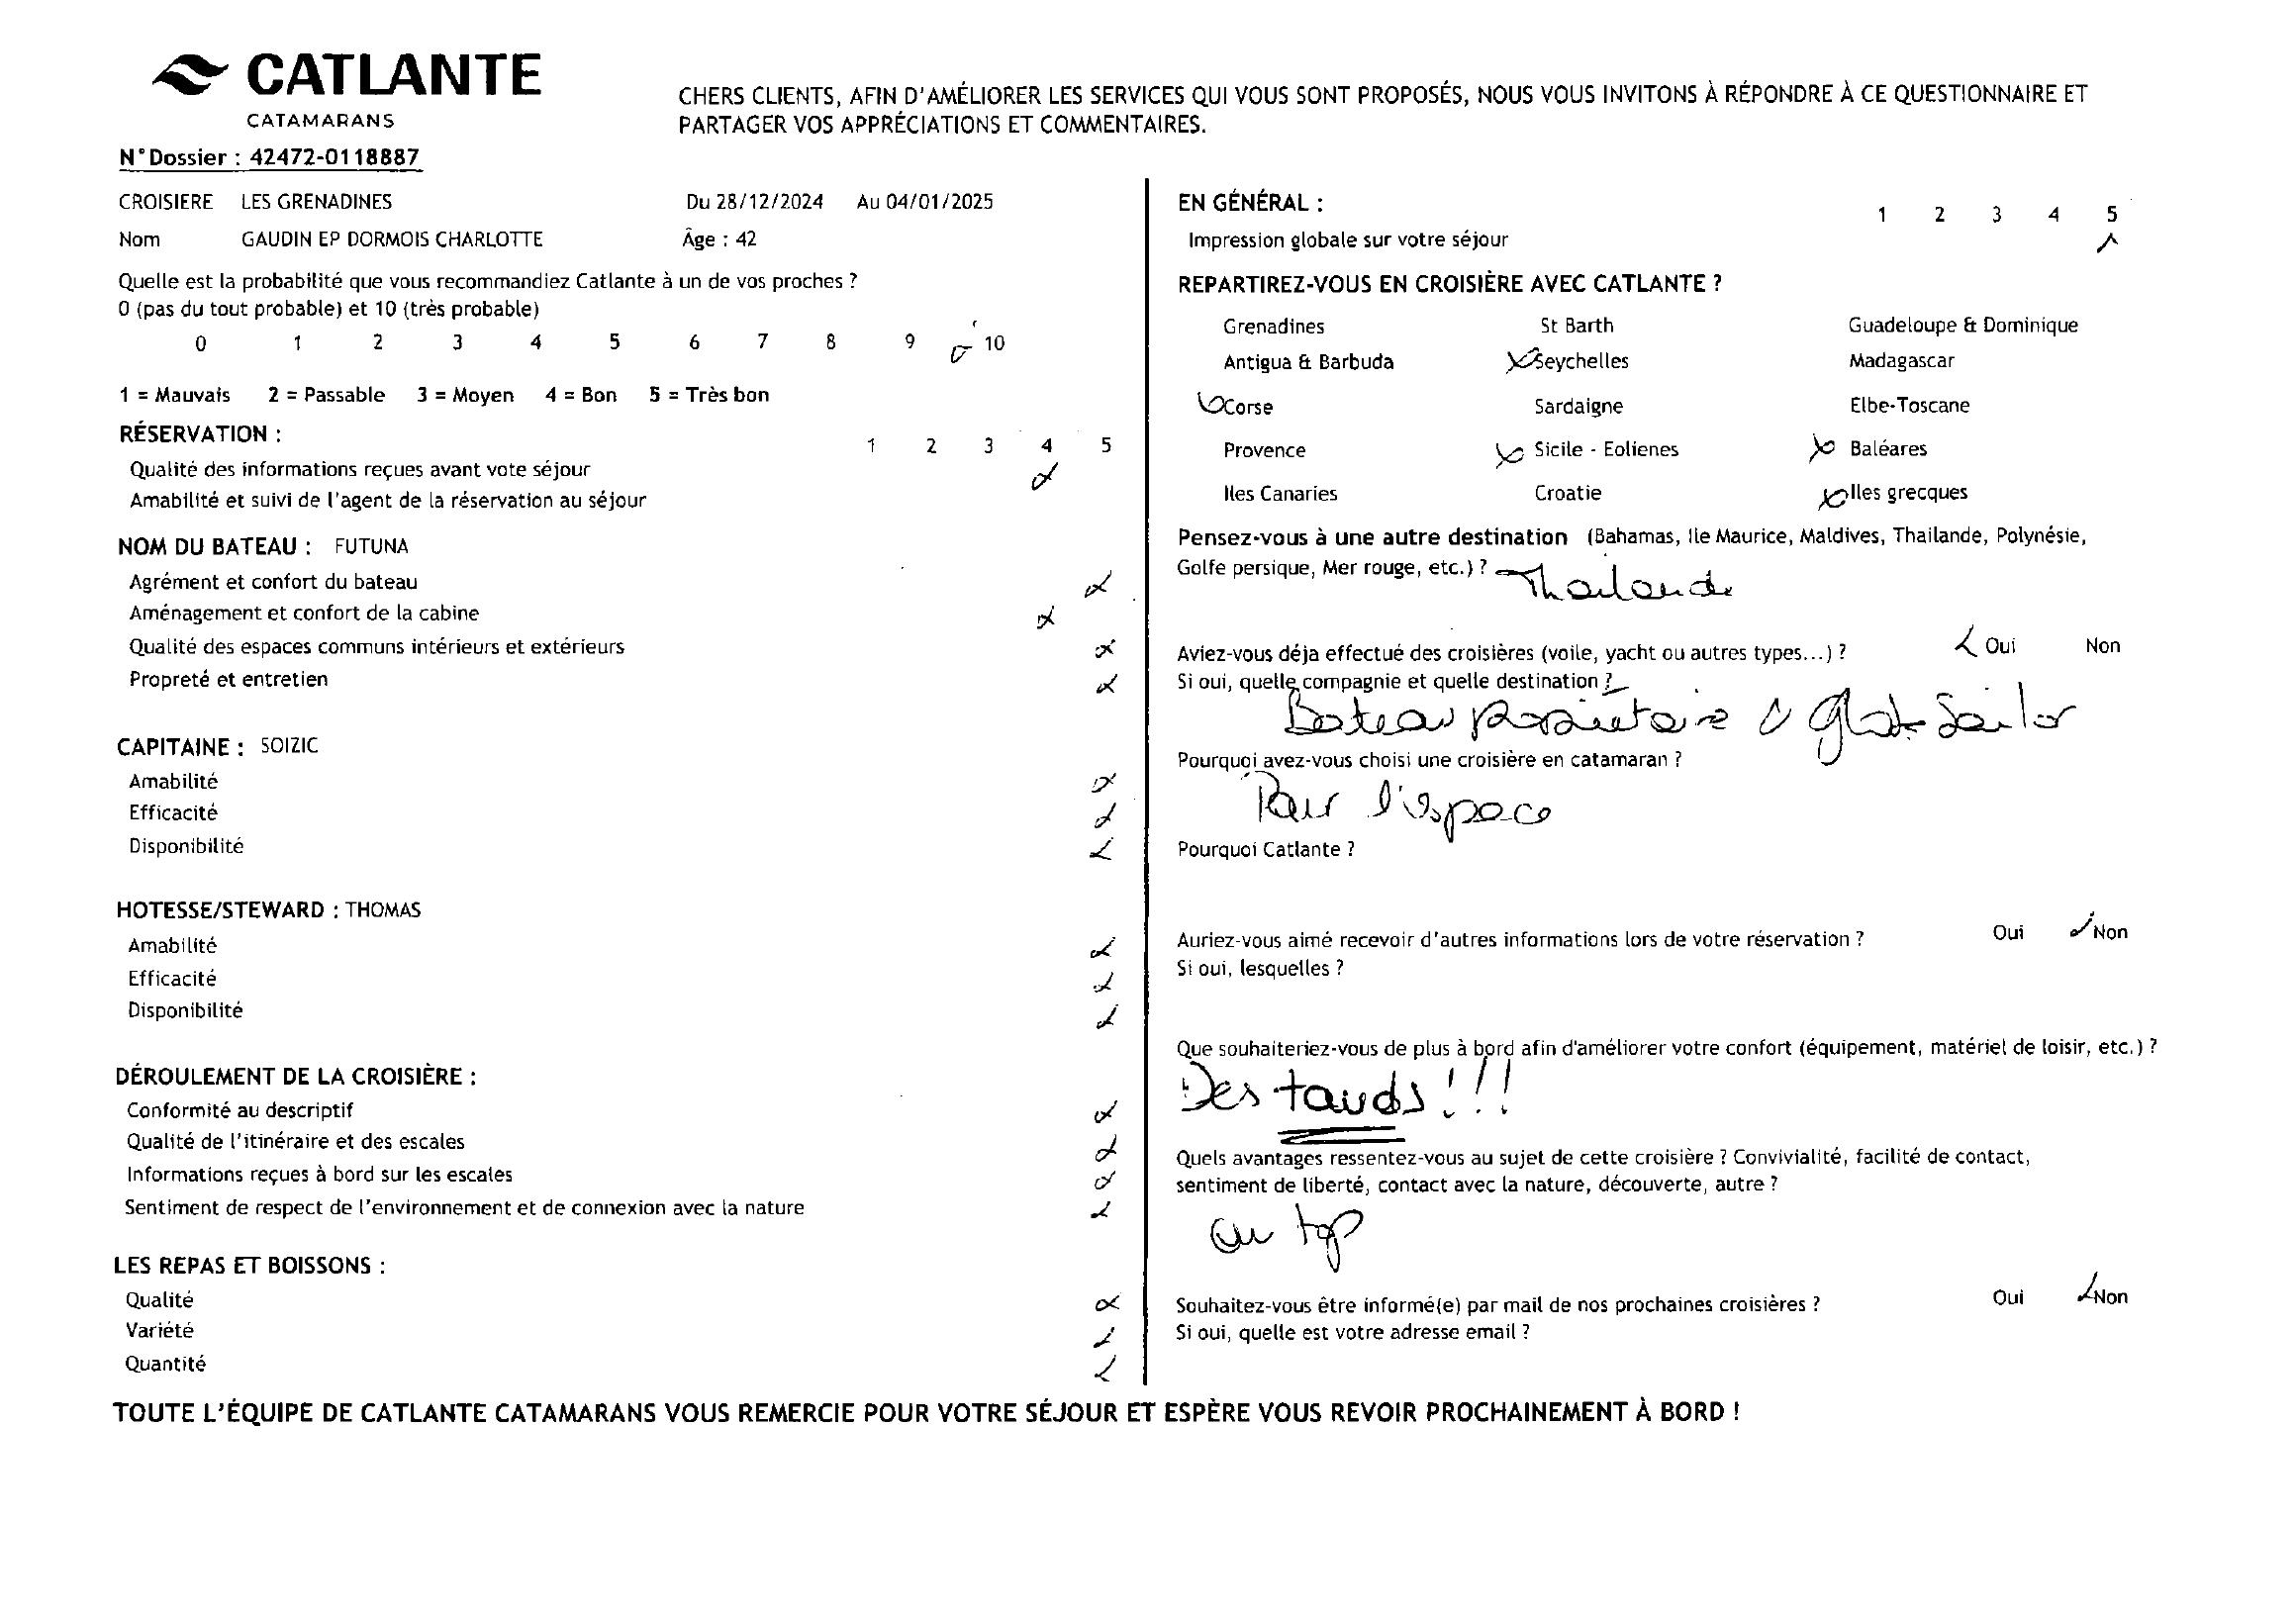 CATLANTE
CATAMARANS
CHERS CLIENTS, AFIN D'AMÉLIORER LES SERVICES QUI VOUS SONT PROPOSÉS, NOUS VOUS INVITONS À RÉPONDRE À CE QUESTIONNAIRE ET
PARTAGER VOS APPRÉCIATIONS ET COMMENTAIRES.
N°Dossier : 42472-0118887
CROISIERE LES GRENADINES Du 28/12/2024 Au 04/01/2025
Nom GAUDIN EP DORMOIS CHARLOTTE Âge : 42
Quelle est la probabilité que vous recommandiez Catlante à un de vos proches ?
0 (pas du tout probable) et 10 (très probable)
0 1 2 3 4 5 6 7 8 9 10
1 = Mauvais 2 = Passable 3 = Moyen 4 = Bon 5 = Très bon
RÉSERVATION :
1 2 3 4 5
Qualité des informations reçues avant vote séjour
Amabilité et suivi de l'agent de la réservation au séjour
NOM DU BATEAU : FUTUNA
Agrément et confort du bateau
Aménagement et confort de la cabine
Qualité des espaces communs intérieurs et extérieurs
Propreté et entretien
CAPITAINE : SOIZIC
Amabilité
Efficacité
Disponibilité
HOTESSE/STEWARD : THOMAS
Amabilité
Efficacité
Disponibilité
DÉROULEMENT DE LA CROISIÈRE :
Conformité au descriptif
Qualité de l'itinéraire et des escales
Informations reçues à bord sur les escales
Sentiment de respect de l'environnement et de connexion avec la nature
LES REPAS ET BOISSONS :
Qualité
Variété
Quantité
EN GÉNÉRAL :
1 2 3 4 5
Impression globale sur votre séjour
REPARTIREZ-VOUS EN CROISIÈRE AVEC CATLANTE ?
Grenadines St Barth Guadeloupe & Dominique
Antigua & Barbuda Seychelles Madagascar
Corse Sardaigne Elbe-Toscane
Provence Sicile - Eolienes Baléares
Iles Canaries Croatie Iles grecques
Pensez-vous à une autre destination (Bahamas, Ile Maurice, Maldives, Thailande, Polynésie,
Golfe persique, Mer rouge, etc.) ? Thailande
Aviez-vous déja effectué des croisières (voile, yacht ou autres types...) ? Oui Non
Si oui, quelle compagnie et quelle destination ?
Bateau propriétaire Sailor
Pourquoi avez-vous choisi une croisière en catamaran ?
Pour l'espace
Pourquoi Catlante ?
Auriez-vous aimé recevoir d'autres informations lors de votre réservation ? Oui Non
Si oui, lesquelles ?
Que souhaiteriez-vous de plus à bord afin d'améliorer votre confort (équipement, matériel de loisir, etc.) ?
Des tauds !!!
Quels avantages ressentez-vous au sujet de cette croisière ? Convivialité, facilité de contact,
sentiment de liberté, contact avec la nature, découverte, autre ?
au top
Souhaitez-vous être informé(e) par mail de nos prochaines croisières ? Oui Non
Si oui, quelle est votre adresse email ?
TOUTE L'ÉQUIPE DE CATLANTE CATAMARANS VOUS REMERCIE POUR VOTRE SÉJOUR ET ESPÈRE VOUS REVOIR PROCHAINEMENT À BORD !